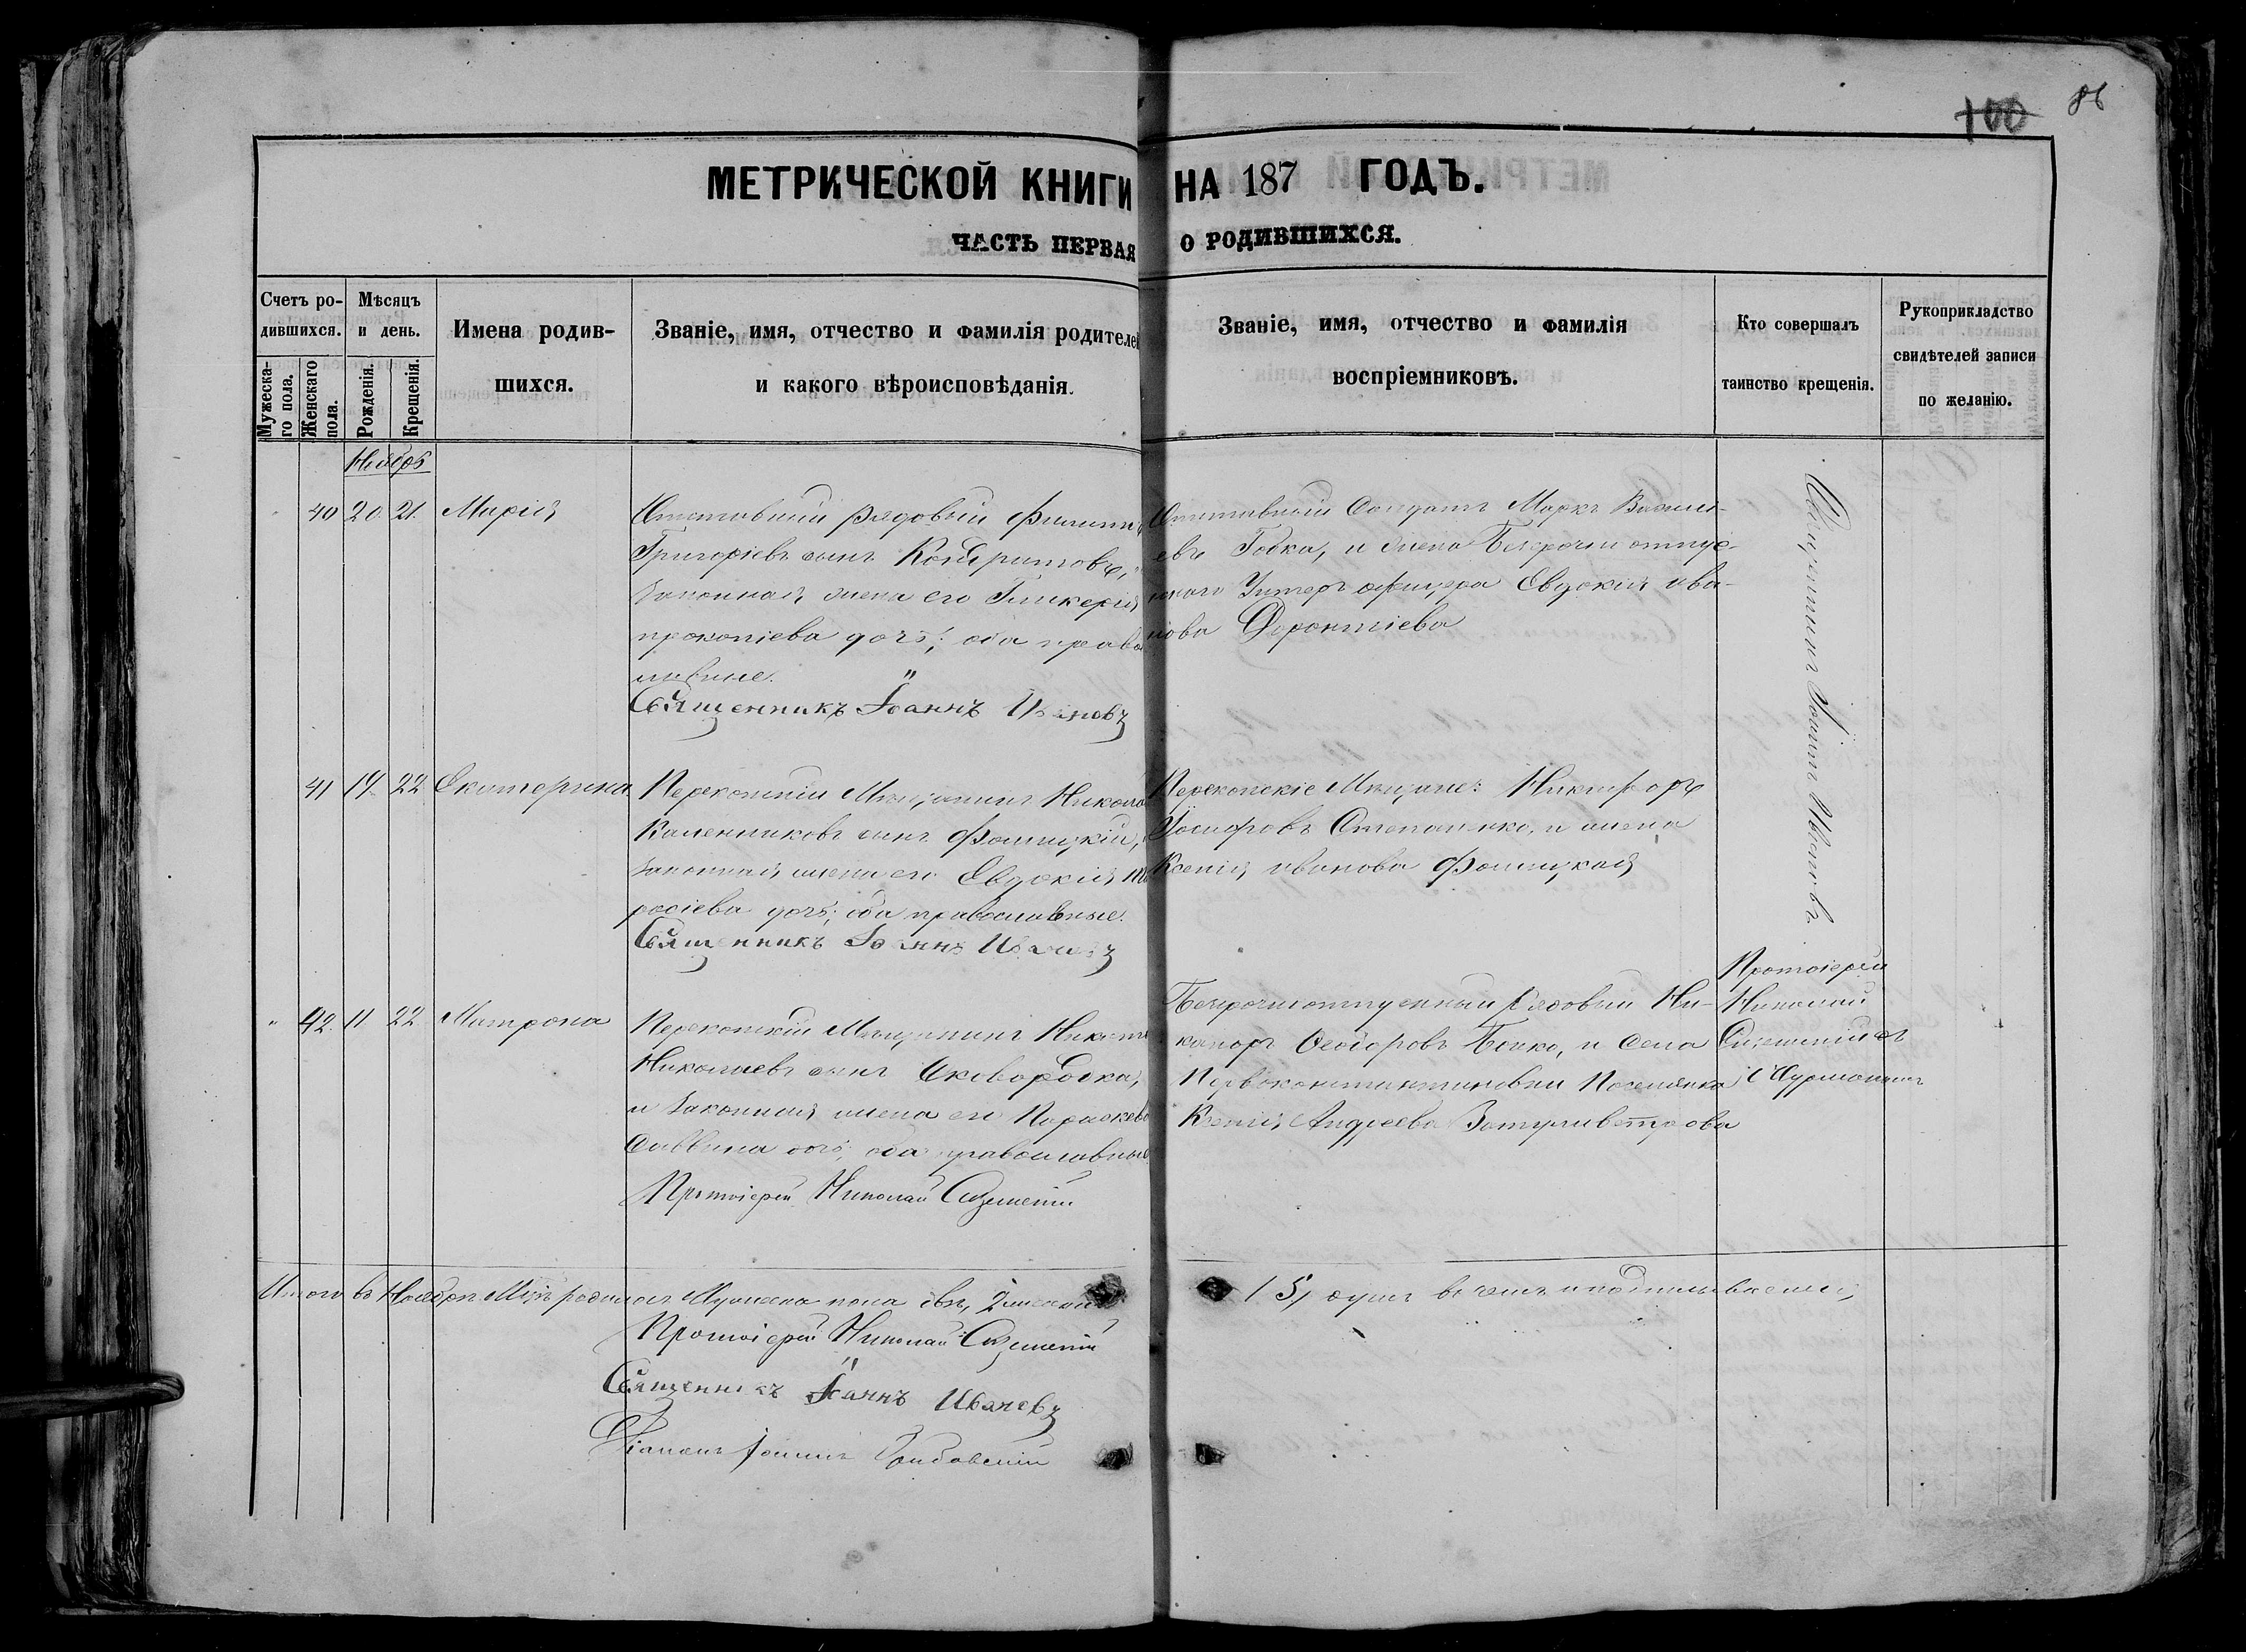 100 86
МЕТРИЧЕСКОЙ КНИГИ НА 187 ГОДЪ.
ЧАСТЬ ПЕРВАЯ О РОДИВШИХСЯ.
Счетъ ро-
дившихся.
Мужеска-
го пола.
Женскаго
пола.
Мѣсяцъ
и день.
Рожденія.
Крещенія.
Имена родив-
шихся.
Званіе, имя, отчество и фамилія родителей
и какого вѣроисповѣданія.
Званіе, имя, отчество и фамилія
воспріемниковъ.
Кто совершалъ
таинство крещенія.
Рукоприкладство
свидѣтелей записи
по желанію.
Ноябрь
40 20. 21. Марія
Отставный рядовый Филиппъ
Григоріевъ сынъ Кондратовъ,
законная жена его Гликерія
прокопіева дочь; оба право
славные.
Священникъ Іоаннъ Ивановъ
Отставный Солдатъ Маркъ Василі-
евъ Годка, и жена Безсрочно отпус-
наго Унтеръ офицера Евдокія ива-
нова Ферентіева
Священникъ Іоаннъ Ивановъ
41 19. 22 Екатерина
Перекопскій Мѣщанинъ Николай
сынъ Фоміцкій,
законная жена его Евдокія
расіева дочь; оба православные.
Священникъ Іоаннъ Ивановъ
Перекопскіе Мѣщане: Никифоръ
Іосифовъ Степаненко, и жена
Ксенія иванова Фоміцкая
42. 11. 22. Матрона
Перекопскій Мѣщанинъ Никита
Николаевъ сынъ Сковородка,
и законная жена его Параскева
Саввина дочь; оба православные
Протоіерей Николай
Безсрочноотпускный Рядовый Ни-
каноръ Ѳеодоровъ Бойко, и села
Первоконстантиновки Поселянка
Ксенія Андреева Затуливетрова
Протоіерей
Николай
Итого въ Ноябрѣ Мцѣ родилось Мужеска пола два, 2
15, душъ въ чемъ и подписываемся,
Протоіерей Николай
Священникъ Іоаннъ Ивановъ
Діаконъ Іоаннъ Грибовскій